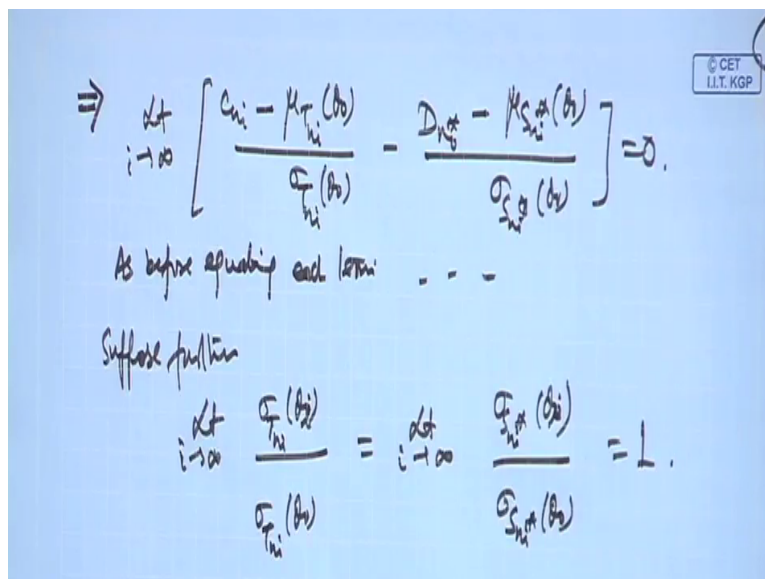 © CET
I.I.T. KGP
⇒ Lt i→∞ [ (c_{n_i} − μ_{T_{n_i}}(θ_0)) / σ_{T_{n_i}}(θ_0) − (D_{n_i^*} − μ_{S_{n_i^*}}(θ_0)) / σ_{S_{n_i^*}}(θ_0) ] = 0.
As before equating each term - - -
Suppose further
Lt i→∞ σ_{T_{n_i}}(θ_i) / σ_{T_{n_i}}(θ_0) = Lt i→∞ σ_{S_{n_i^*}}(θ_i) / σ_{S_{n_i^*}}(θ_0) = 1.